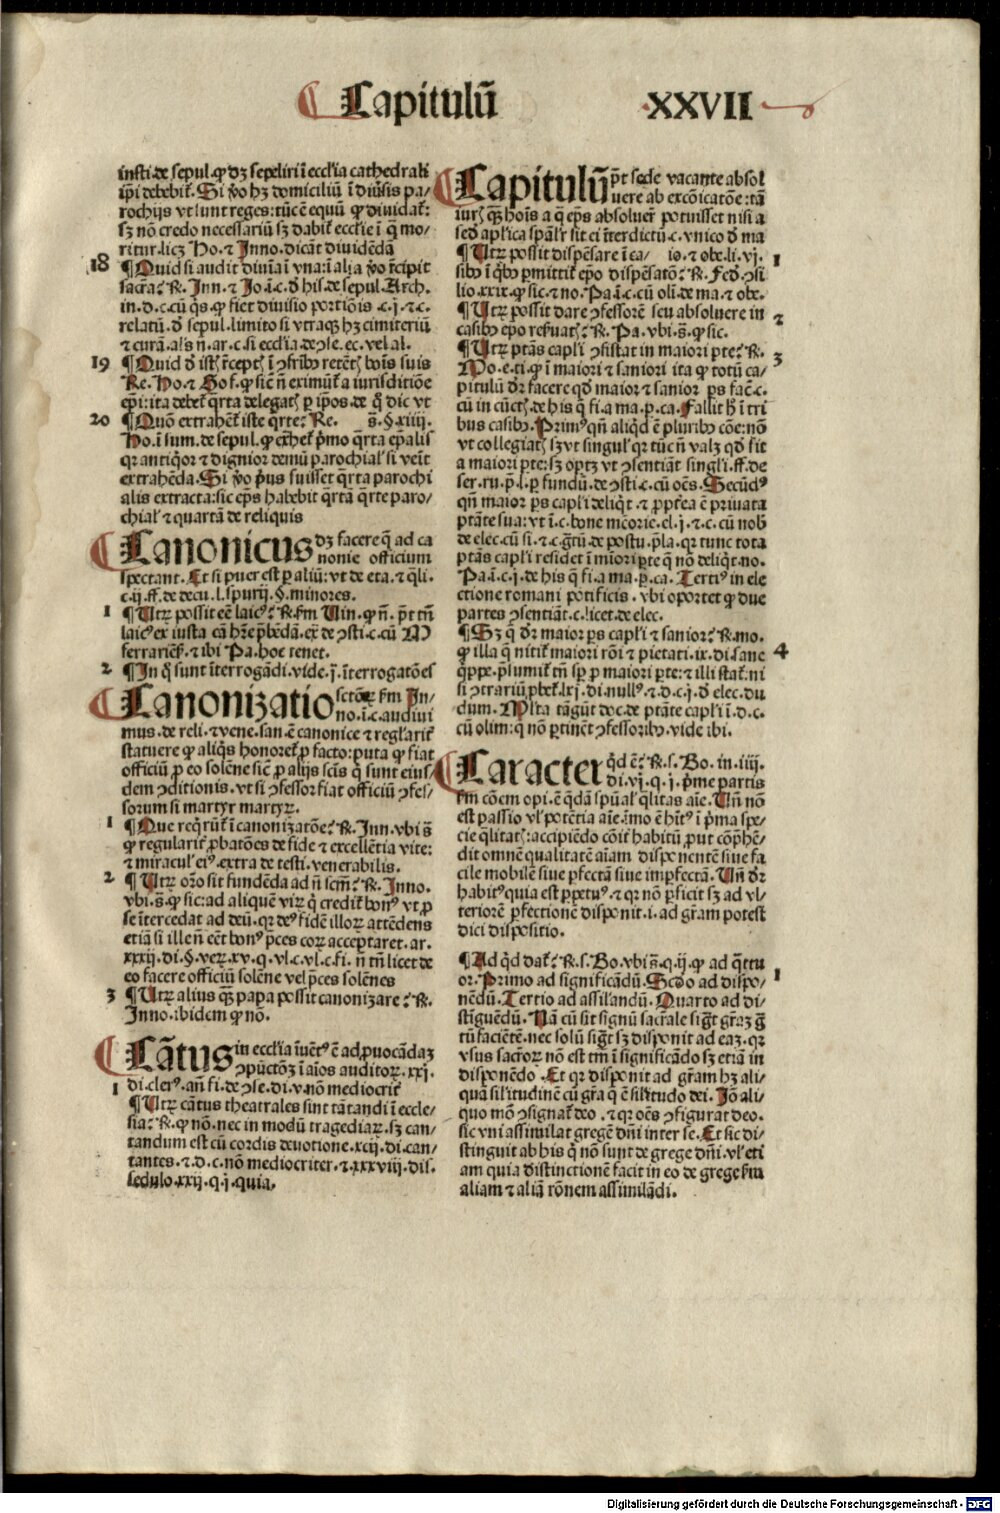 Capitulū
XXVII
insti. de sepul. ꝙ dꝫ sepeliri ī eccl'ia cathedrali
ip̄i debebit̉. Si v̉o hꝫ domiciliū ī diu̓sis pa/
rochijs vt sunt reges: tūc ē equū ꝙ diuidat̉:
sꝫ nō credo necessariū sꝫ dabit̉ eccl'ie ī q̄ mo/
ritur. licꝫ Ho. ⁊ Inno. dicāt diuidēdā
18 ¶ Quid si audit diuīa ī vna: ī alia v̉o r̄cipit
sacr̄a: ꝶ. Inn. ⁊ Jo. ī. c. ð his. de sepul. Arch.
in. d. c. cū q̄s. ꝙ fiet diuisio portiōis .c. j. ⁊ .c.
relatū. ð sepul. limito si vtraqꝫ hꝫ cimiteriū
⁊ curā. al's n̄. ar. c. si eccl'ia. de ꝯse. ec. vel al.
19 ¶ Quid ð istꝭ r̄ceptꝭ ī ꝯfr̄ibꝰ retētꝭ boīs suis
Re. Ho. ⁊ Gof. ꝙ sic n̄ eximūt̉ a iurisditiōe
ep̄i: ita debet̉ q̄rta delegatꝭ ꝑ ip̄os. de q̄ dic vt
20 ¶ Quō extrahet̉ iste q̄rte: Re. s̄. §. xiiij.
Ho. ī sum. de sepul. ꝙ ext̉het̉ pͥmo q̄rta ep̄alis
qꝛ antiq̉or ⁊ dignior demū parochial' si veīt
extrahēda. Si v̉o pͥus fuisset q̄rta parochi
alis extracta: sic ep̄s habebit q̄rtā q̄rte paro/
chial' ⁊ quartā de reliquis
Canonicus dꝫ facere q̄ ad ca
nonie officium
spectant. Et si puer est ꝑ aliū: vt de eta. ⁊ q̄li.
c. ij. ff. de decu. l. spurij. §. minores.
1 ¶ Utꝝ possit eē laicꝰ: ꝶ. fm Uin. ꝙ n̄. p̄t tn̄
laicꝰ ex iusta cā h̄re p̄bēdā. ex̄. de ꝯsti. c. cū M
ferrariēs̄. ⁊ ibi Pa. hoc tenet.
2 ¶ In q̄ sunt īterrogādi. vide. j. īterrogatōes
Canonizatio sctōꝝ fm In/
no. ī. c. audiui
mus. de reli. ⁊ vene. san. ē canonice ⁊ regl'arit̉
statuere ꝙ aliq̄s honoret̉ ꝓ facto: puta ꝙ fiat
officiū ꝓ eo solēne sic̄ ꝓ alijs scīs q̄ sunt eius/
dem ꝯditionis. vt si ꝯfessor fiat officiū ꝯfes/
sorum si martyr martyꝝ.
1 ¶ Que req̉rūt̉ ī canonizatōe: ꝶ. Inn. vbi s̄
ꝙ regularit̉ ꝓbatōes de fide ⁊ excellētia vite:
⁊ miracul' eiꝰ. extra de testi. venerabilis.
2 ¶ Utꝝ or̄o sit fundēda ad n̄ scm̄: ꝶ. Inno.
vbi. s̄. ꝙ sic: ad aliquē viꝝ q̄ credit̉ bonꝰ vt ꝓ
se ītercedat ad deū. qꝛ deꝰ fidē illoꝝ attēdens
etiā si ille n̄ eēt bonꝰ p̄ces coꝝ acceptaret. ar.
xxxij. di. §. veꝝ. xv. q. vl. c. vl. c. fi. n̄ tn̄ licet de
eo facere officiū solēne vel p̄ces solēnes
3 ¶ Utꝝ alius qꝫ papa possit canonizare: ꝶ.
Inno. ibidem ꝙ nō.
Cātus in eccl'ia īuētꝰ ē ad ꝓuocādaꝫ
ꝯpūctōꝫ ī aīos auditoꝝ. xxj.
di. clerꝰ. an̄ fi. de ꝯse. di. v. nō mediocrit̉
1 ¶ Utꝝ cātus theatrales sint cātandi ī eccle/
sia: ꝶ. ꝙ nō. nec in modū tragediaꝝ. sꝫ can/
tandum est cū cordis deuotione. xcij. di. can/
tantes. ⁊ .d. c. nō mediocriter. ⁊ .xxxviij. dis.
sedulo. xxij. q. j. quia.
Capitulū p̄t sede vacante absol
uere ab excōicatōe: tā
iurꝭ qꝫ hoīs a q̄ ep̄s absoluer̄ potuisset nisi a
sed̄ apl'ica spāl'r sit ei īterdictū. c. vnico ð ma
¶ Utꝝ possit dispēsare ī ca/ io. ⁊ obe. li. vj. 1
sibꝰ ī q̄bꝰ ꝑmittit̉ ep̄o dispēsatō: ꝶ. Fed̄. ꝯsi
lio. xxix. ꝙ sic. ⁊ no. Pa. ī. c. cū oli. de ma. ⁊ obe.
¶ Utꝝ possit dare ꝯfessorē seu absoluere in
casibꝰ ep̄o res̉uatꝭ: ꝶ. Pa. vbi. s̄. ꝙ sic. 2
¶ Utꝝ ptās capl'i ꝯsistat in maiori ꝑte: ꝶ. 3
Mo. e. ti. ꝙ ī maiori ⁊ saniori ita ꝙ totū ca/
pitulū dr̄ facere qð maior ⁊ sanior ꝑs fac̄. c.
cū in cūctꝭ. de his q̄ fi. a ma. ꝑ. ca. Fallit h̄ ī tri
bus casibꝰ. Primꝰ qn̄ aliqð ē pluribꝰ cōe: nō
vt collegiatꝭ sꝫ vt singul' qꝛ tūc n̄ valꝫ qð fit
a maiori ꝑte: sꝫ optꝫ vt ꝯsentiāt singl'i. ff. de
ser. ru. p̄. l. ꝑ fundū. de ꝯsti. c. cū oēs. Secūdꝰ
qn̄ maior ꝑs capl'i deliq̄t. ⁊ ꝓpt̉ea ē priuata
ptāte sua: vt ī. c. bone meōrie. el. j. ⁊ .c. cū nob̄
de elec. cū si. ⁊ c. gr̄tū. de postu. p̄la. qꝛ tunc tota
ptās capl'i residet ī miori ꝑte q̄ nō deliq̄t. no.
Pa. ī. c. j. de his q̄ fi. a ma. ꝑ. ca. Tertiꝰ in ele
ctione romani pōtificis. vbi oportet ꝙ due
partes ꝯsentiāt. c. licet. de elec.
¶ Sꝫ q̄ dr̄ maior ꝑs capl'i ⁊ sanior: ꝶ. mo.
ꝙ illa q̄ nitit̉ maiori rōi ⁊ pietati. ix. di. sane 4
q̉ppe. p̄lumit̉ tn̄ sꝑ ꝓ maiori ꝑte: ⁊ illi stat̉: ni
si ꝯtrariū ꝓbet̉. lxj. di. nullꝰ. ⁊ .d. c. j. ð elec. du
dum. Ml'ta tāgūt doc. de ptāte capl'i ī. d. c.
cū olim: q̄ nō ꝑtinēt ꝯfessoribꝰ. vide ibi.
Caracter q̉d ē: ꝶ. s. Bo. in. iiij.
di. vj. q. j. pͥme partis
fm cōem opi. ē q̄dā spūal' q̄litas aīe. Un̄ nō
est passio vl' potētia aīe. īmo ē h̄itꝰ ī pͥma spe/
cie q̄litatꝭ: accipiēdo cōit̉ habitū ꝓut cōp̄hē/
dit omnē qualitatē aīam disponentē siue fa
cile mobilē siue ꝑfectā siue imꝑfectā. Un̄ dr̄
habitꝰ quia est ꝑpetuꝰ. ⁊ qꝛ nō ꝑficit sꝫ ad vl/
teriorē ꝑfectionē disponit. i. ad gr̄am potest
dici dispositio.
¶ Ad q̉d dat̉: ꝶ. s. Bo. vbi s̄. q. ij. ꝙ ad q̄ttu
or. Primo ad significādū. Scdo ad dispo/ 1
nēdū. Tertio ad assilandū. Quarto ad di/
stīguēdū. Nā cū sit signū sacr̄ale sig̉t gr̄aꝫ ḡ
tū faciētē. nec solū sig̉t sꝫ disponit ad eaꝫ. qꝛ
vsus sacr̄oꝝ nō est tm̄ ī significādo sꝫ etiā in
disponēdo. Et qꝛ disponit ad gr̄am hꝫ ali/
quā sil'itudinē cū gr̄a q̄ ē sil'itudo dei. Jō ali/
quo mō ꝯsignat̉ deo. ⁊ qꝛ oēs ꝯfigurat deo.
sic vni assimilat gregē dn̄i inter se. Et sic di/
stinguit ab his q̄ nō sunt de grege dn̄i. vl' eti
am quia distinctionē facit in eo de grege fm
aliam ⁊ aliā rōnem assimilādi.
Digitalisierung gefördert durch die Deutsche Forschungsgemeinschaft - DFG